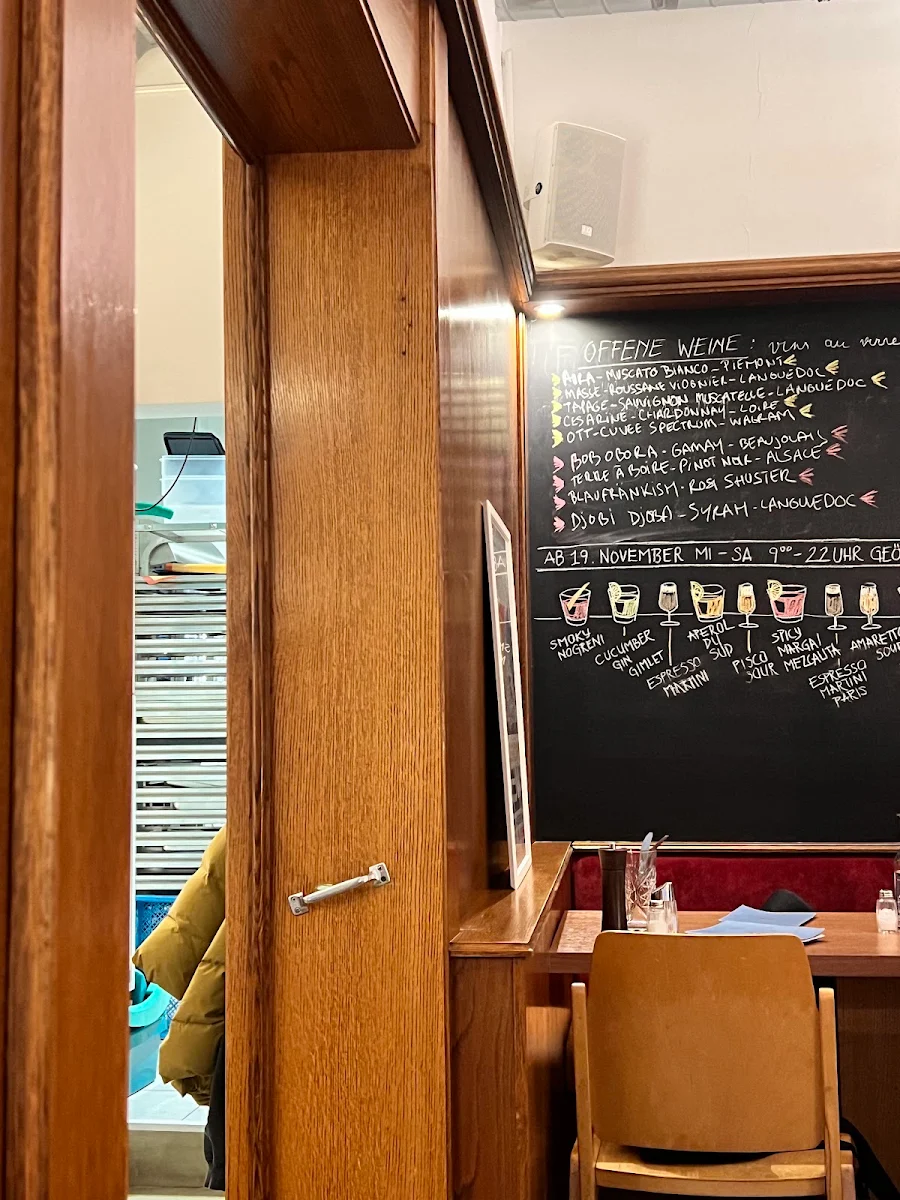 OFFENE WEINE : vins au verre
AURA - MUSCATO BIANCO - PIEMONT
MASSE - ROUSSANE VIOGNIER - LANGUEDOC
TAPAGE - SAUVIGNON MUSCATELLE - LANGUEDOC
CESARINE - CHARDONNAY - LOIRE
OTT - CUVEE SPECTRUM - WAGRAM
BOBOBORA - GAMAY - BEAUJOLAIS
TERRE À BOIRE - PINOT NOIR - ALSACE
BLAUFRÄNKISH - ROSI SHUSTER
DJOBI DJOBA - SYRAH - LANGUEDOC
AB 19. NOVEMBER MI - SA 9⁰⁰ - 22 UHR GEÖ
SMOKY NOGRENI
CUCUMBER GIN GIMLET
ESPRESSO MARTINI
APEROL DU SUD
PISCO SOUR
SPICY MARGAI MEZCALITA
ESPRESSO MARTINI PARIS
AMARETTO SOUR